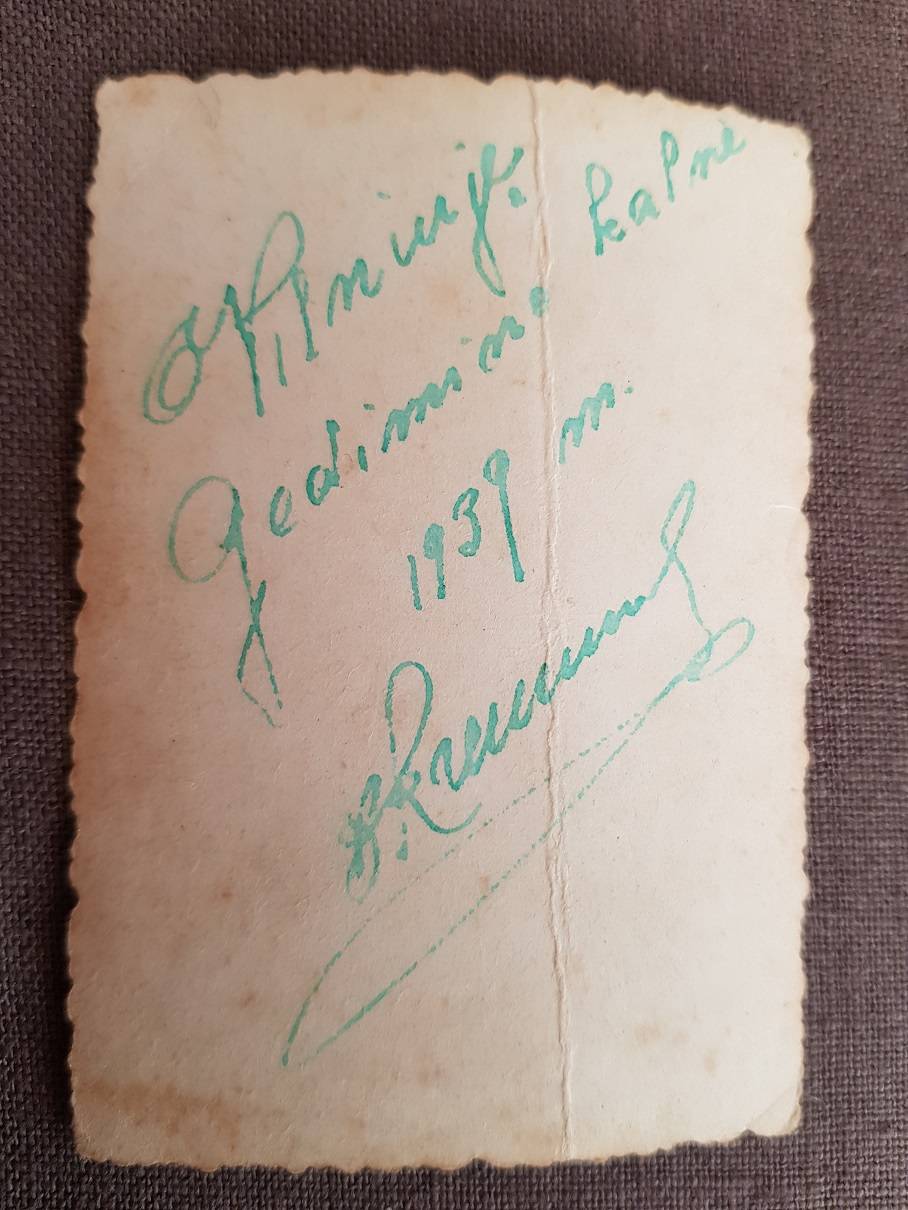 Vilniuje.
Gedimino kalne
1939 m.